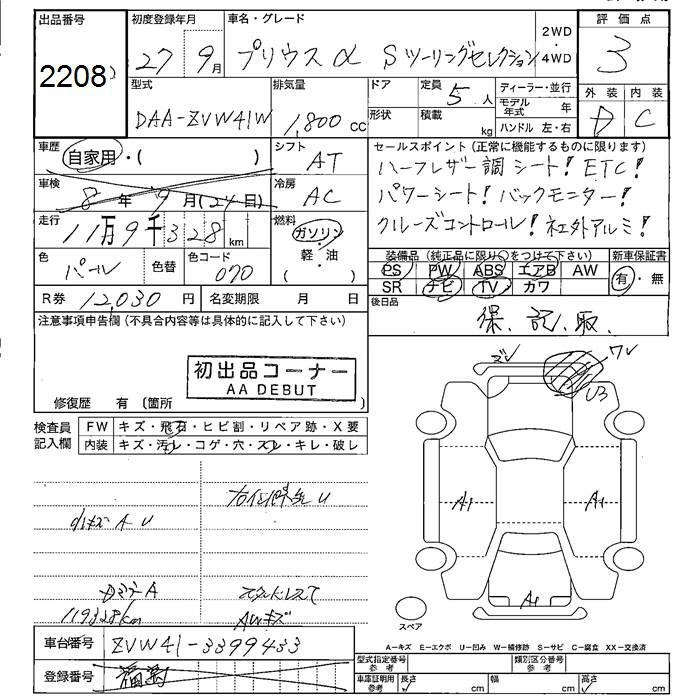 出品番号
2208
初度登録年月
27年9月
車名・グレード
プリウスα Sツーリングセレクション
2WD
・
4WD
評価点
3
型式
DAA-ZVW41W
排気量
1,800 cc
ドア
形状
定員
5人
積載
kg
ディーラー・並行
モデル年式 年
ハンドル 左・右
外装 内装
D C
車歴
自家用・( )
シフト
AT
車検
8年9月(24日)
冷房
AC
走行
11万9千328km
燃料
ガソリン
・
軽・油
( )
色
パール
色替
色コード
070
R券 12,030円
名変期限 月 日
セールスポイント(正常に機能するものに限ります)
ハーフレザー調シート! ETC!
パワーシート! バックモニター!
クルーズコントロール! 社外アルミ!
装備品(純正品に限り○をつけて下さい)
PS PW ABS エアB AW
SR ナビ TV カワ
新車保証書
有・無
後日品
保、記、取
注意事項申告欄(不具合内容等は具体的に記入して下さい)
初出品コーナー
AA DEBUT
修復歴 有(箇所 )
検査員記入欄
FW キズ・飛石・ヒビ割・リペア跡・X要
内装 キズ・汚レ・コゲ・穴・スレ・キレ・破レ
小キズ A U
119328km
AWキズ
ズレ
ワレ
U3
A1
A1
スペア
A-キズ E-エクボ U-凹み W-補修跡 S-サビ C-腐食 XX-交換済
車台番号 ZVW41-3399433
登録番号 福島
型式指定番号 参考
類別区分番号 参考
車庫証明用 参考
長さ cm
幅 cm
高さ cm